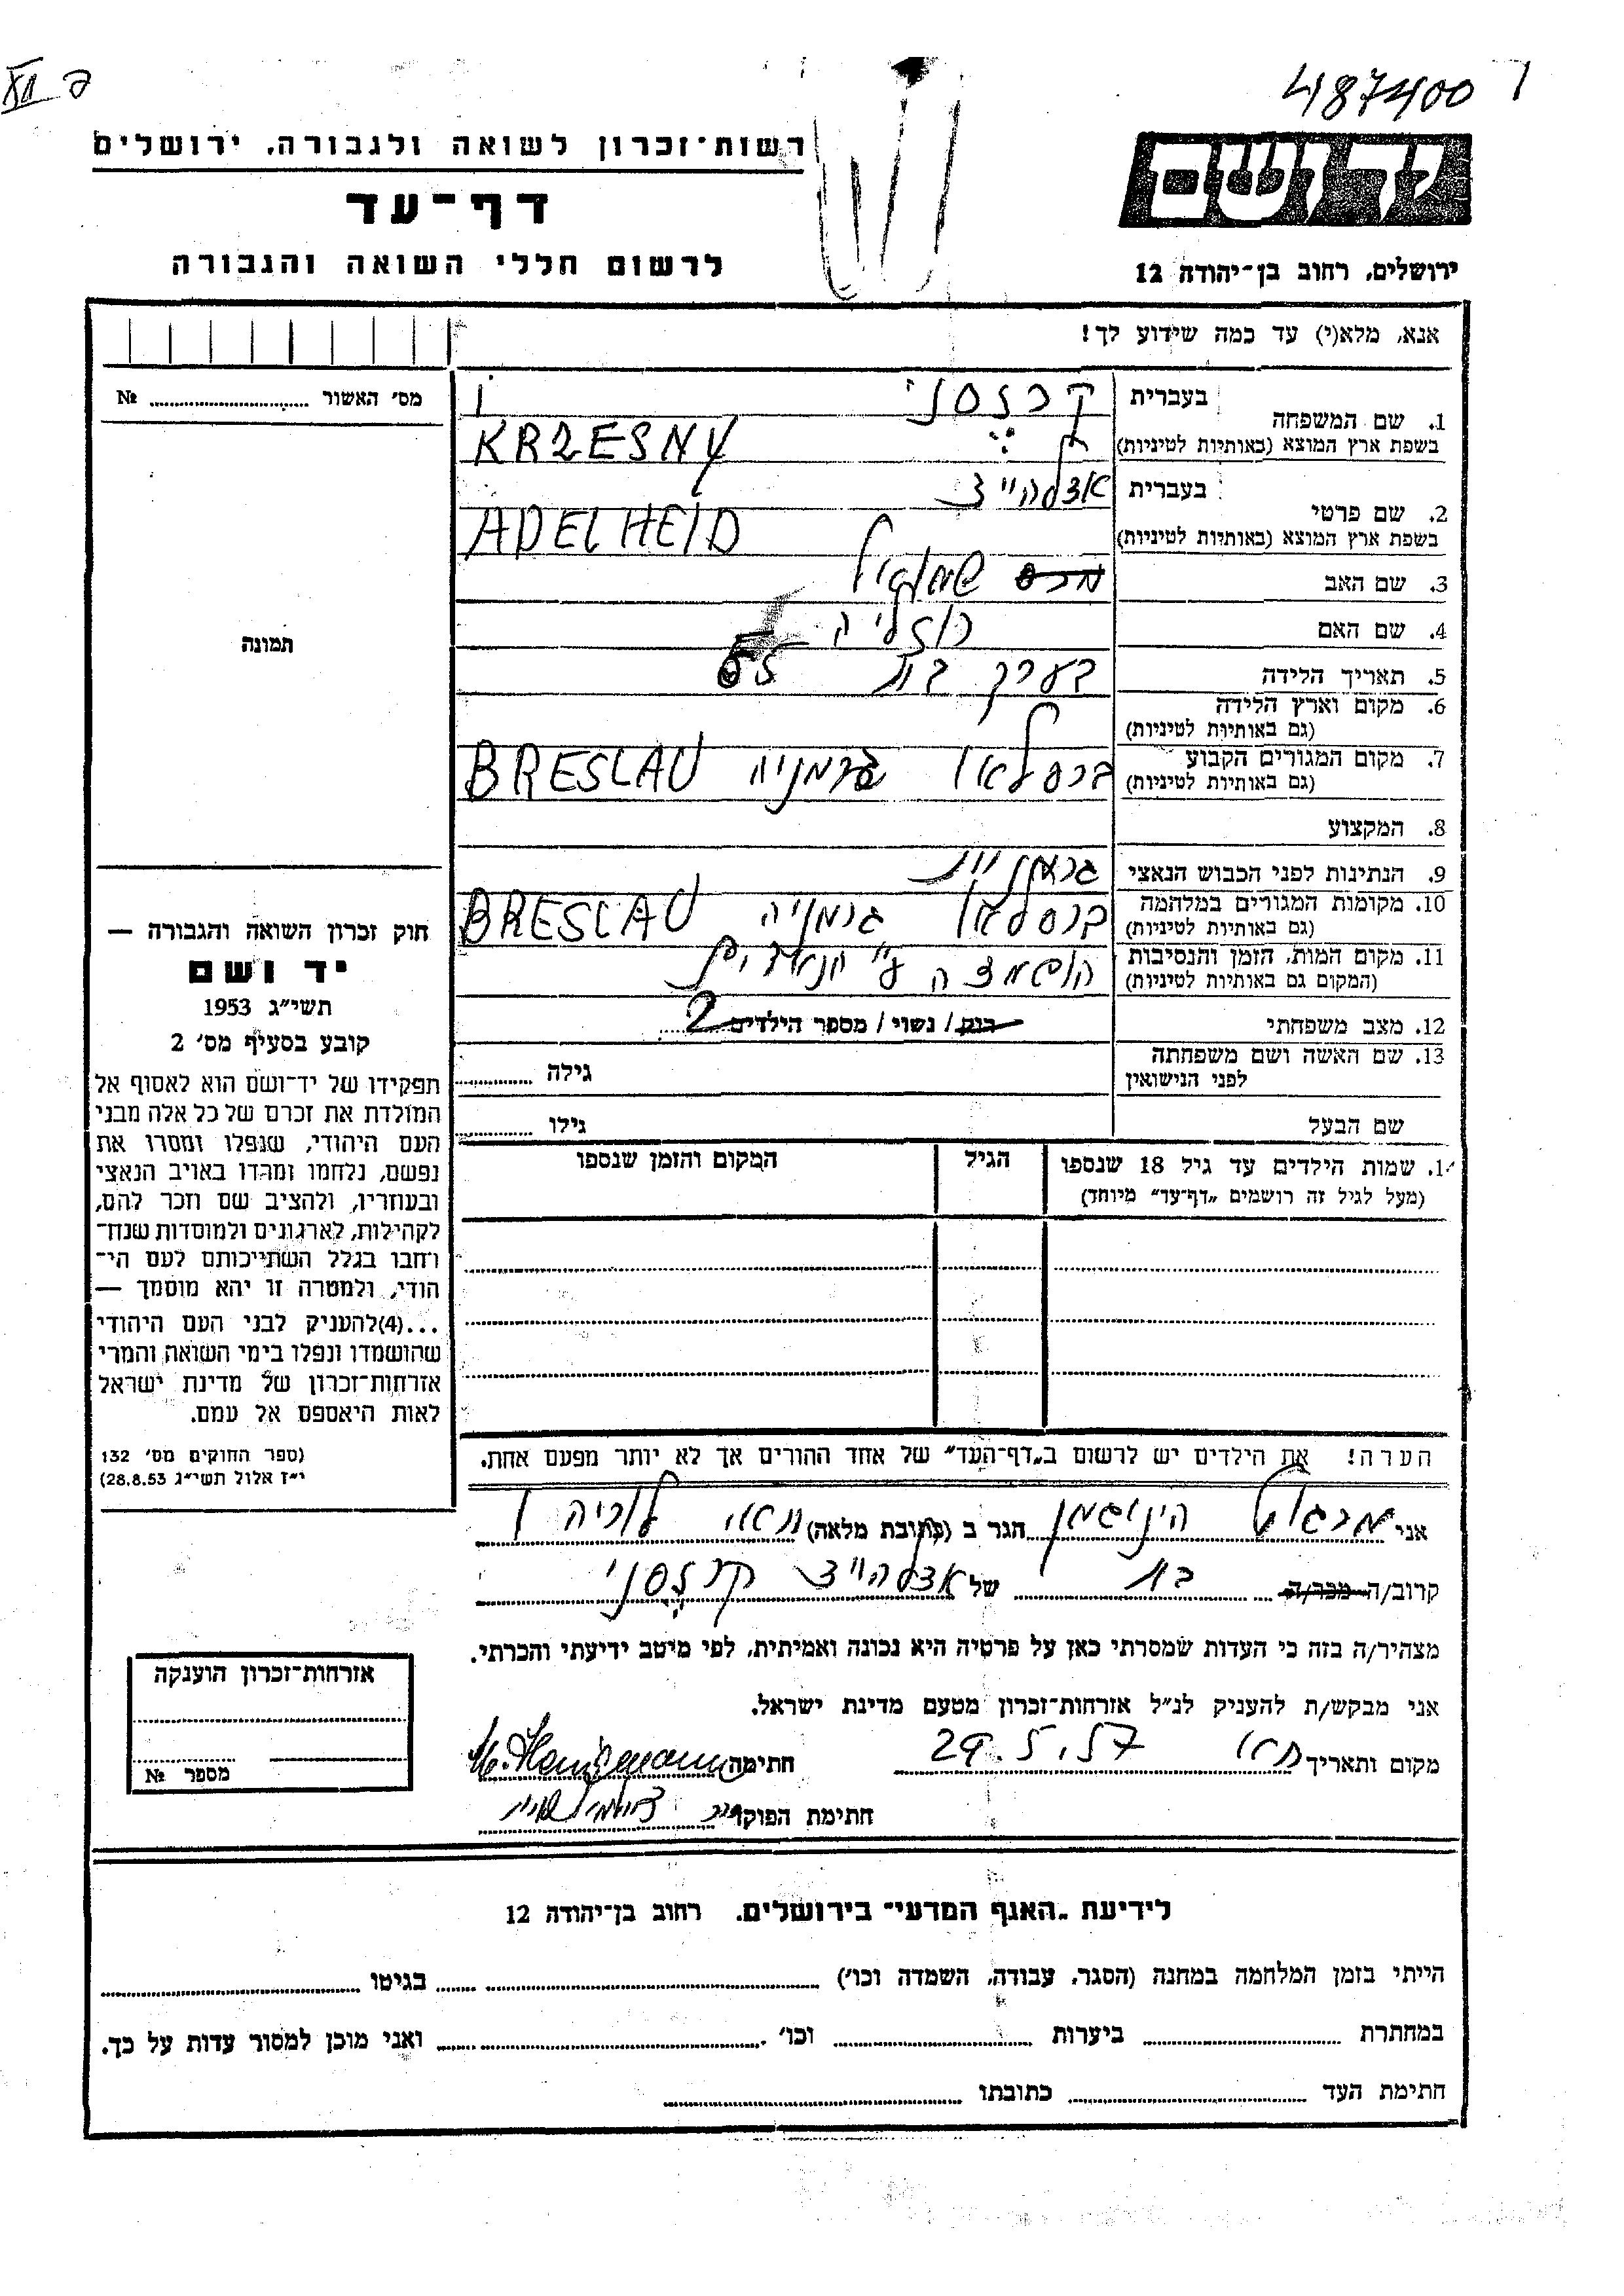 487400
רשות-זכרון לשואה ולגבורה, ירושלים
דף-עד
לרשום חללי השואה והגבורה
יד ושם
ירושלים, רחוב בן-יהודה 12
אנא, מלא(י) עד כמה שידוע לך!
מס' האשור № 
1. שם המשפחה בעברית קרזסני
בשפת ארץ המוצא (באותיות לטיניות) KRZESNY
2. שם פרטי בעברית אדלהייד
בשפת ארץ המוצא (באותיות לטיניות) ADELHEID
3. שם האב שמואל
4. שם האם רוזליה
5. תאריך הלידה בערך בת 65
6. מקום וארץ הלידה
(גם באותיות לטיניות)
7. מקום המגורים הקבוע ברסלאו גרמניה BRESLAU
(גם באותיות לטיניות)
8. המקצוע
9. הנתינות לפני הכבוש הנאצי גרמנית
10. מקומות המגורים במלחמה ברסלאו גרמניה BRESLAU
(גם באותיות לטיניות)
11. מקום המות, הזמן והנסיבות הושמדה ע"י הנאצים
(המקום גם באותיות לטיניות)
12. מצב משפחתי רווק / נשוי / מספר הילדים 2
13. שם האשה ושם משפחתה
לפני הנישואין גילה
שם הבעל גילו
שמות הילדים עד גיל 18 שנספו הגיל המקום והזמן שנספו
(מעל לגיל זה רושמים „דף-עד" מיוחד)
תמונה
חוק זכרון השואה והגבורה —
יד ושם
תשי"ג 1953
קובע בסעיף מס' 2
תפקידו של יד-ושם הוא לאסוף אל
המולדת את זכרם של כל אלה מבני
העם היהודי, שנפלו ומסרו את
נפשם, נלחמו ומרדו באויב הנאצי
ובעוזריו, ולהציב שם וזכר להם,
לקהילות, לארגונים ולמוסדות שנח-
רבו בגלל השתייכותם לעם הי-
הודי, ולמטרה זו יהא מוסמך —
...(4)להעניק לבני העם היהודי
שהושמדו ונפלו בימי השואה והמרי
אזרחות-זכרון של מדינת ישראל
לאות היאספם אל עמם.
(ספר החוקים מס' 132
י"ז אלול תשי"ג 28.8.53)
הערה! את הילדים יש לרשום ב„דף-העד" של אחד ההורים אך לא יותר מפעם אחת.
אני מרגוט הינוגמן הגר ב (כתובת מלאה)
קרוב/ה מכר/ה בת של אדלהייד קרזסני
מצהיר/ה בזה כי העדות שמסרתי כאן על פרטיה היא נכונה ואמיתית, לפי מיטב ידיעתי והכרתי.
אני מבקש/ת להעניק לנ"ל אזרחות-זכרון מטעם מדינת ישראל.
מקום ותאריך 29.5.57 חתימה
חתימת הפוקד
אזרחות-זכרון הוענקה
מספר №
לידיעת „האגף המדעי" בירושלים, רחוב בן-יהודה 12
הייתי בזמן המלחמה במחנה (הסגר, עבודה, השמדה וכו') בגיטו
במחתרת ביערות וכו' ואני מוכן למסור עדות על כך.
חתימת העד כתובתו